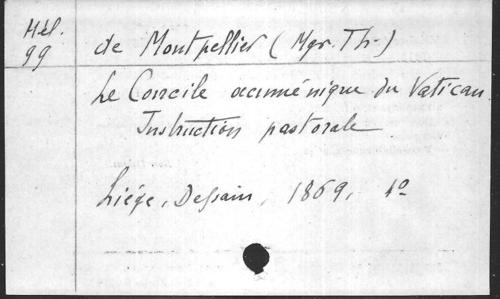 Hél.
99
de Montpellier (Mgr. Th.)
Le Concile œcuménique du Vatican
Instruction pastorale
Liége, Dessain, 1869, 4º